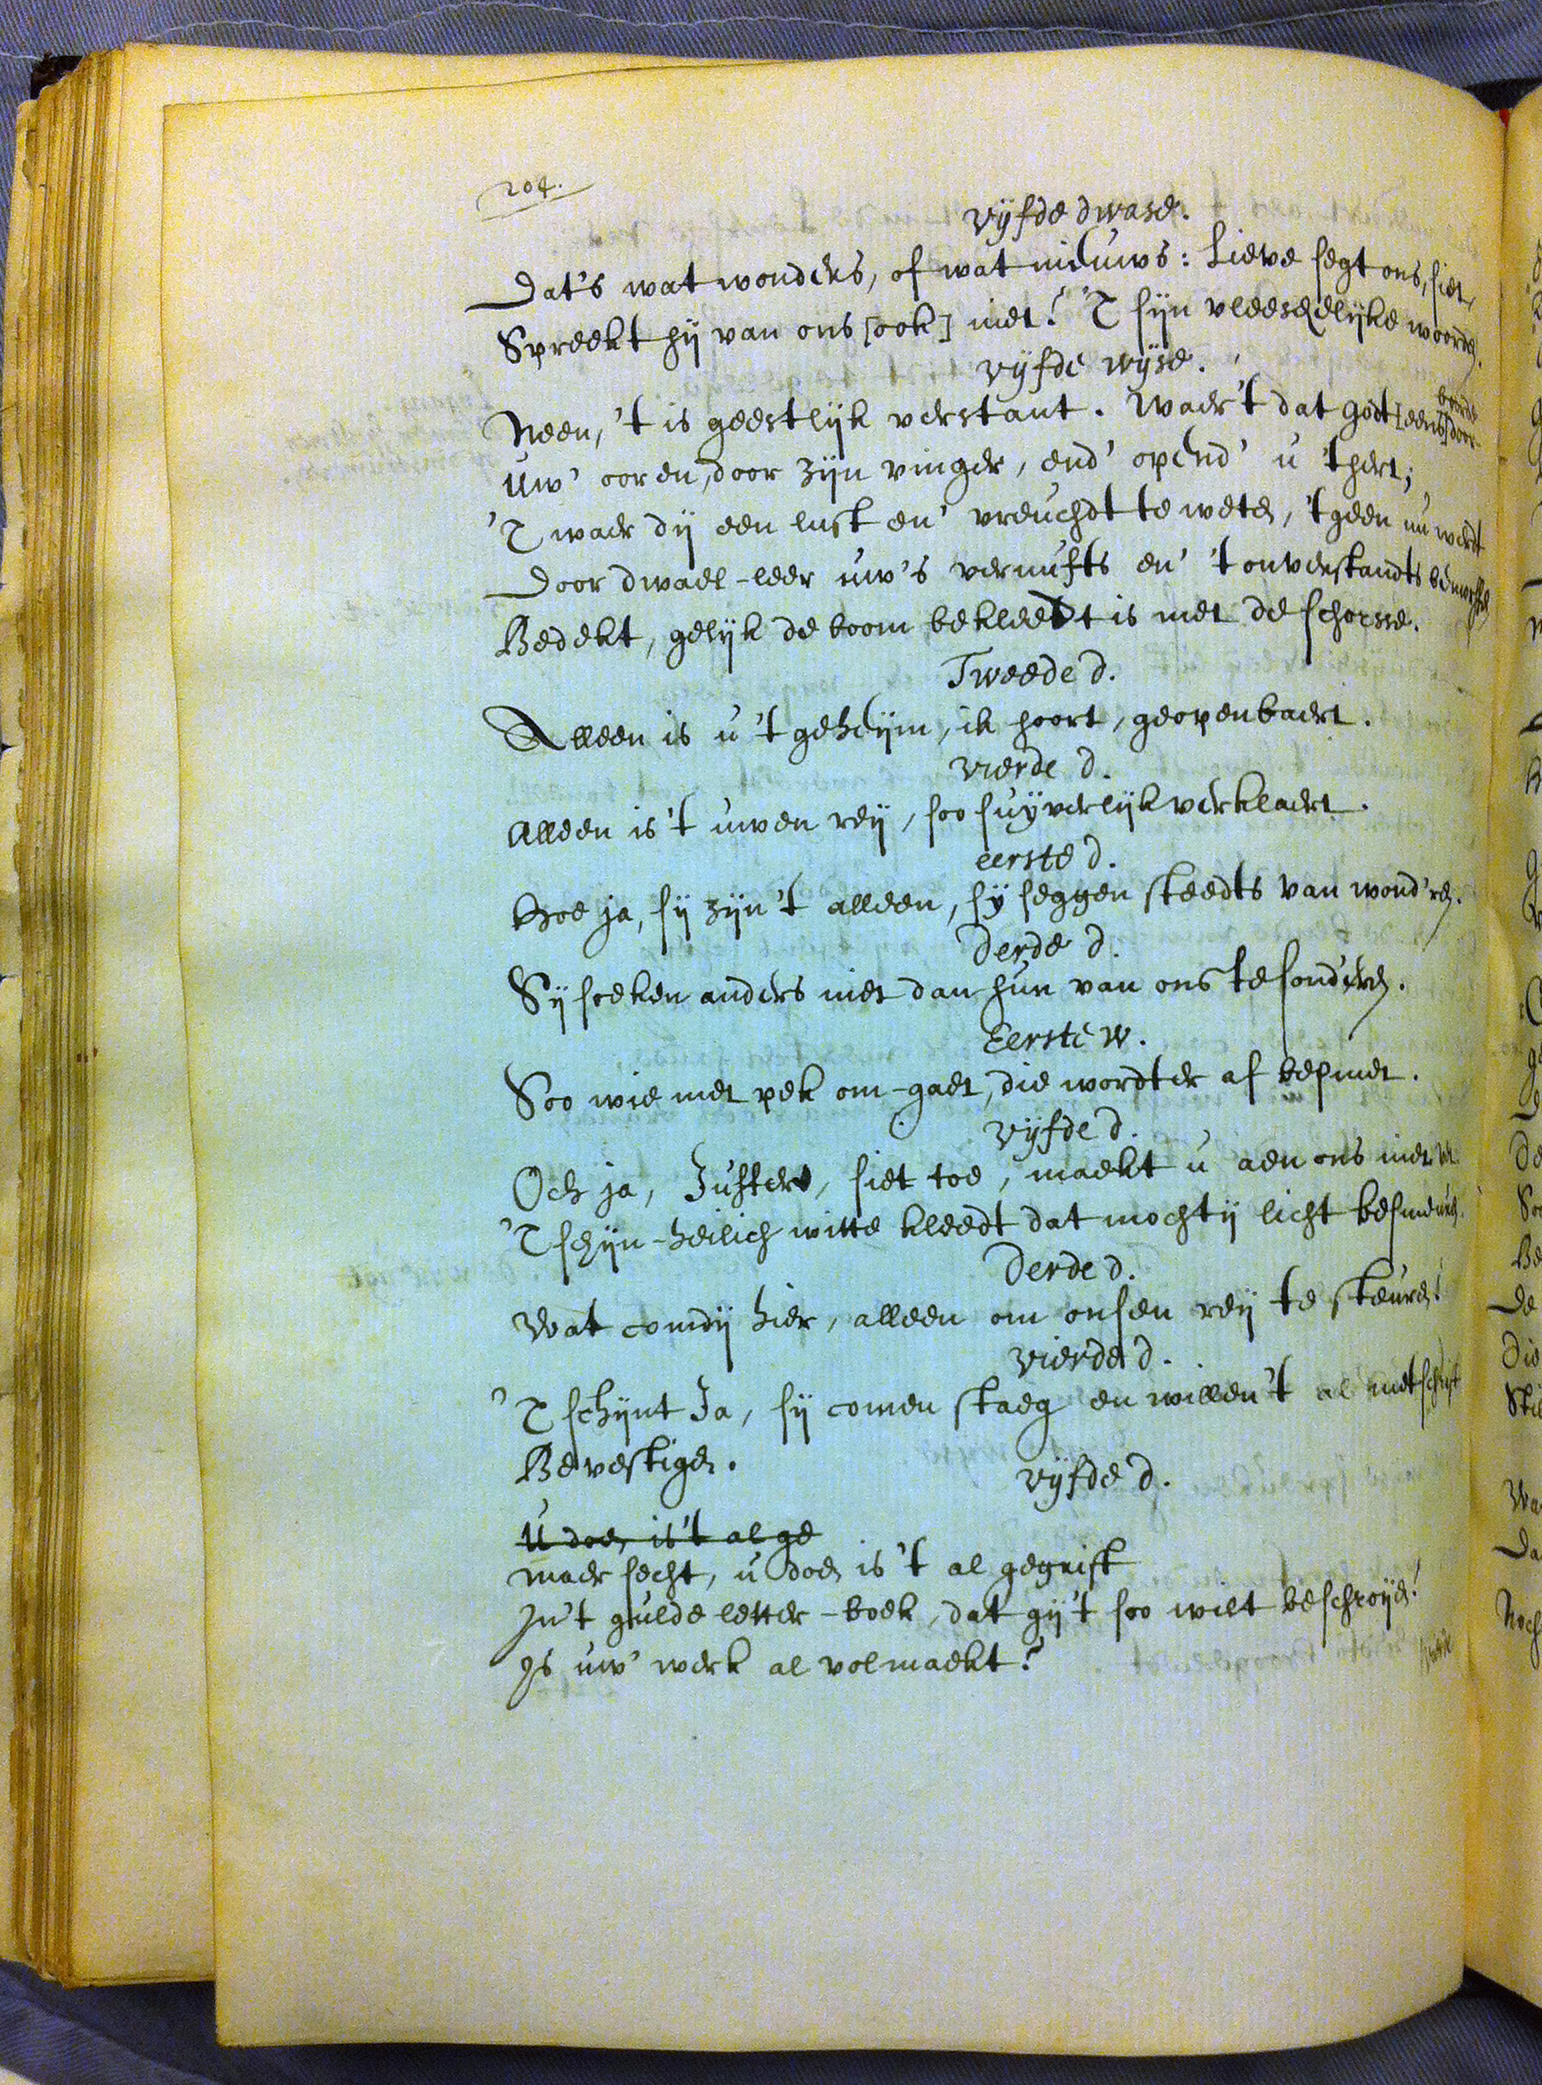 204.
vijfde dwase.
Dat's wat wonders, of wat nieuws: Lieve segt ons, siet,
Spreekt hij van ons [ook] niet? 'T sijn vleeschelijke woorden.
vijfde wijse.
Neen, 't is geestlijk verstant. Waer't dat Godt [eens] door-
boorde
Uw' ooren, door zijn vinger, end' opend' u 't hert;
'T waer dij een lust en' vreuchdt te weten, 't geen nu werdt
Door dwael-leer uw's vernufts en' 't onverstandts
Bedekt, gelijk de boom bekleedt is met de schorsse.
Tweede d.
Alleen is u 't geheijm, ik hoort, geopenbaert.
vierde d.
Alleen is 't uwen reij, soo suijverlijk verklaert.
eerste d.
Hoe ja, sij zijn 't alleen, sij seggen steedts van wond'ren.
Derde d.
Sij soeken anders niet dan hun van ons te sond'ren.
Eerste W.
Soo wie met pek om-gaet, die wordter af besmet.
vijfde d.
Och ja, Juffers, siet toe, maekt u aen ons niet vet.
'T schijn-heilich witte kleedt dat mochtij licht besmeuren.
Derde d.
Wat comdij hier, alleen om onsen reij te steuren?
vierde d.
'T schijnt Ja, sij comen staeg en willen't al met schrift
Bevestigen.
vijfde d.
U doen is 't al ge
maer secht, u doen is 't al gegrift
In't gulde letter-boek, dat gij't soo wilt beschroijen?
Is uw' werk al volmaekt?